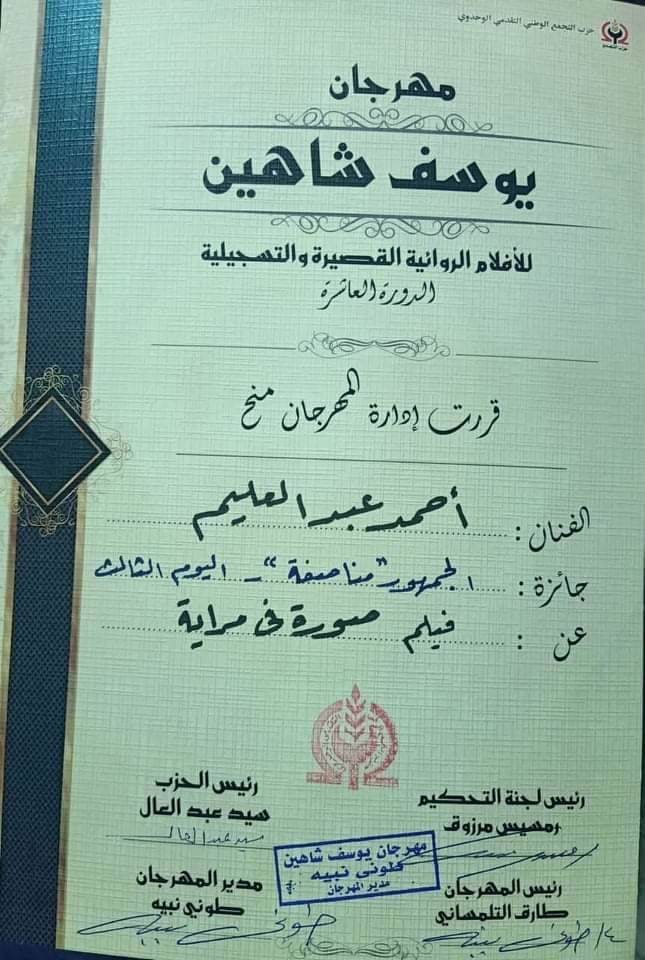 حزب التجمع الوطني التقدمي الوحدوي
حزب التجمع
مهرجان
يوسف شاهين
للأفلام الروائية القصيرة والتسجيلية
الدورة العاشرة
قررت إدارة المهرجان منح
الفنان : أحمد عبد العليم
جائزة : الجمهور "مناصفة" - اليوم الثالث
عن : فيلم صورة في مراية
رئيس لجنة التحكيم
رمسيس مرزوق
رئيس الحزب
سيد عبد العال
سيد عبد العال
مهرجان يوسف شاهين
طونى نبيه
مدير المهرجان
رئيس المهرجان
طارق التلمساني
مدير المهرجان
طوني نبيه